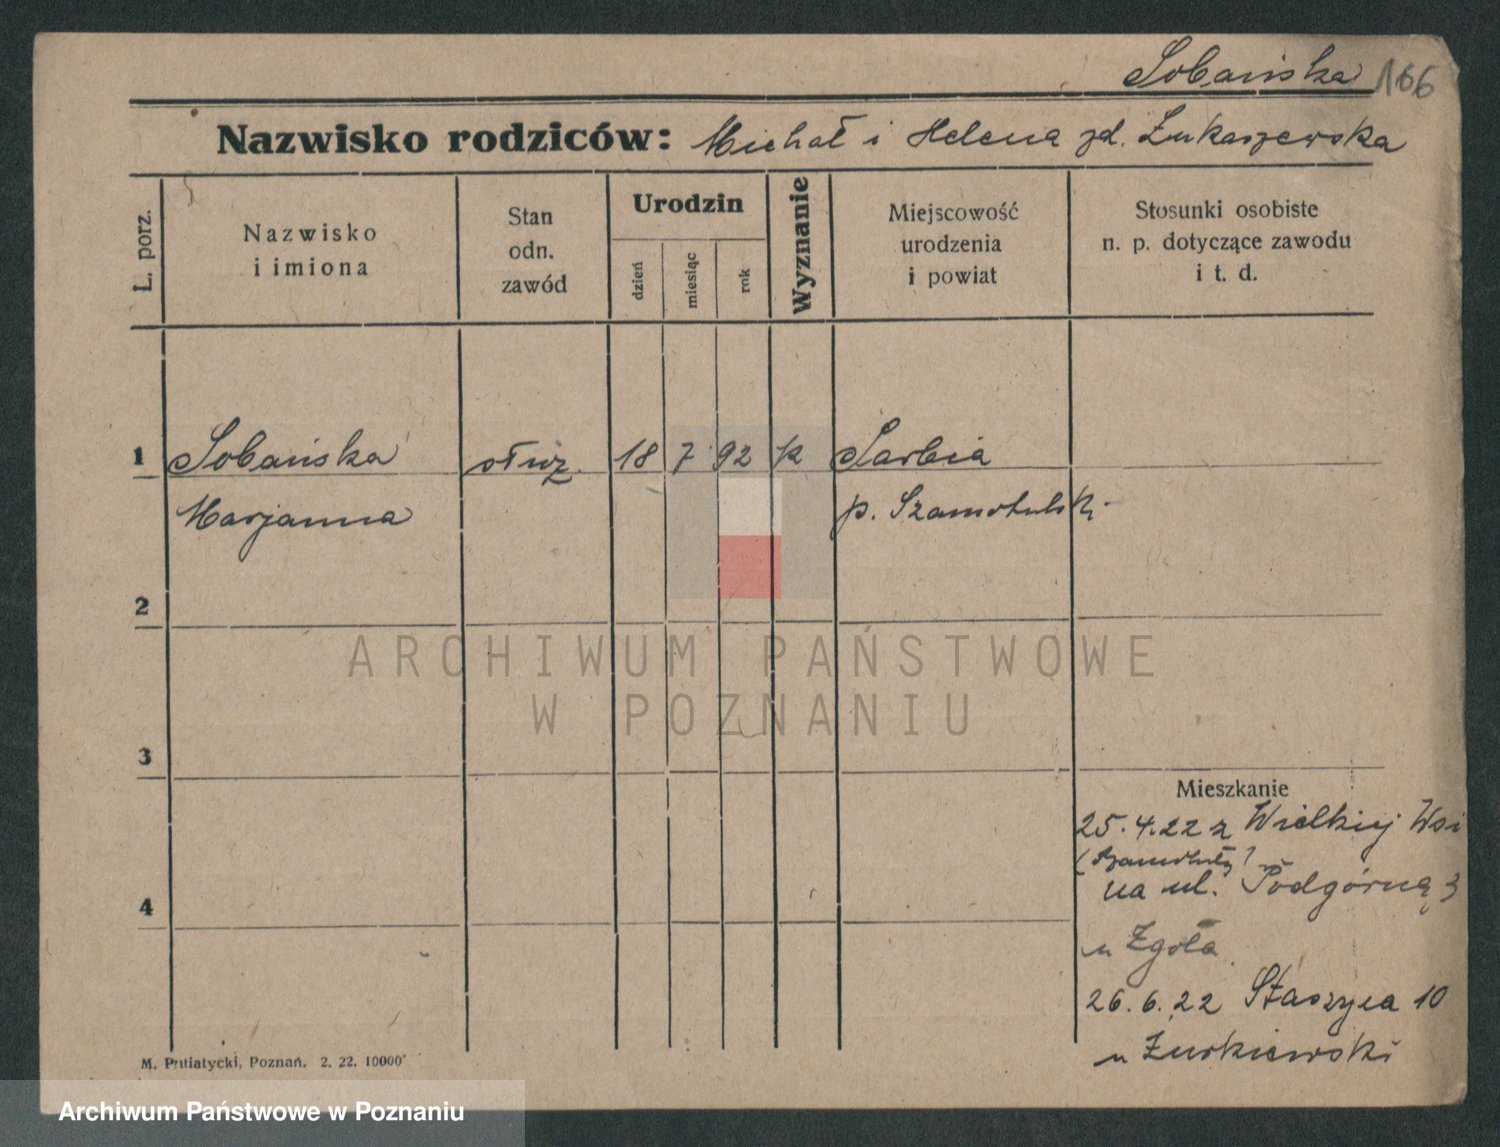 Sobańska 166
Nazwisko rodziców: Michał i Helena zd. Łukaszewska
L. porz.
Nazwisko
i imiona
Stan
odn.
zawód
Urodzin
dzień
miesiąc
rok
Wyznanie
Miejscowość
urodzenia
i powiat
Stosunki osobiste
n. p. dotyczące zawodu
i t. d.
1 Sobańska służ. 18 7 92 k Sarbia
Marjanna p. Szamotulski
2
3
Mieszkanie
25.4.22 z Wielkiej Wsi
(Szamotuły)
na ul. Podgórną 3
4
u Zgoła
26.6.22 Staszyca 10
u Żurkiewski
M. Putiatycki, Poznań. 2. 22. 10000
ARCHIWUM PAŃSTWOWE
W POZNANIU
Archiwum Państwowe w Poznaniu